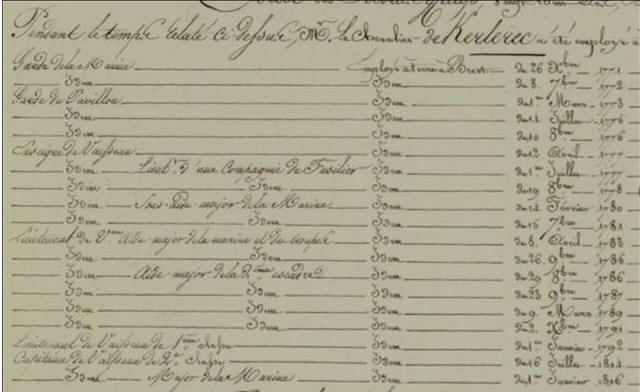 Pendant le temps relaté ci-dessus, Mr. Le Chevalier de Kerlerec a été employé à
Garde de la Marine Employé à terre à Brest du 26 Xbre 1771
Idem Idem du 8 7bre 1772
Garde du Pavillon Idem du 1er Mars 1773
Idem Idem du 14 Juillet 1776
Idem Idem du 10 8bre 1776
Enseigne de Vaisseau Idem du 12 Avril 1777
Idem Lieut. d'une Compagnie de Fusilier Idem du 1er Juillet 1777
Idem Idem Idem du 19 8bre 1778
Idem Sous-Aide-major de la Marine Idem du 14 Février 1780
Idem Idem Idem du 15 7bre 1781
Lieutenant de Vau Aide-major de la marine et des troupes Idem du 8 Avril 1783
Idem Idem Idem du 26 9bre 1786
Idem Aide-major de la 2eme escadre Idem du 29 8bre 1786
Idem Idem Idem du 23 9bre 1787
Idem Idem Idem du 9 Mars 1789
Idem Idem Idem du 2 Xbre 1791
Lieutenant de Vaisseau de 1ere Classe Idem du 1er Janvier 1792
Capitaine de Vaisseau de 2e Classe Idem du 16 Juillet 1814
Idem Major de la Marine Idem du 1er Janvier 1816